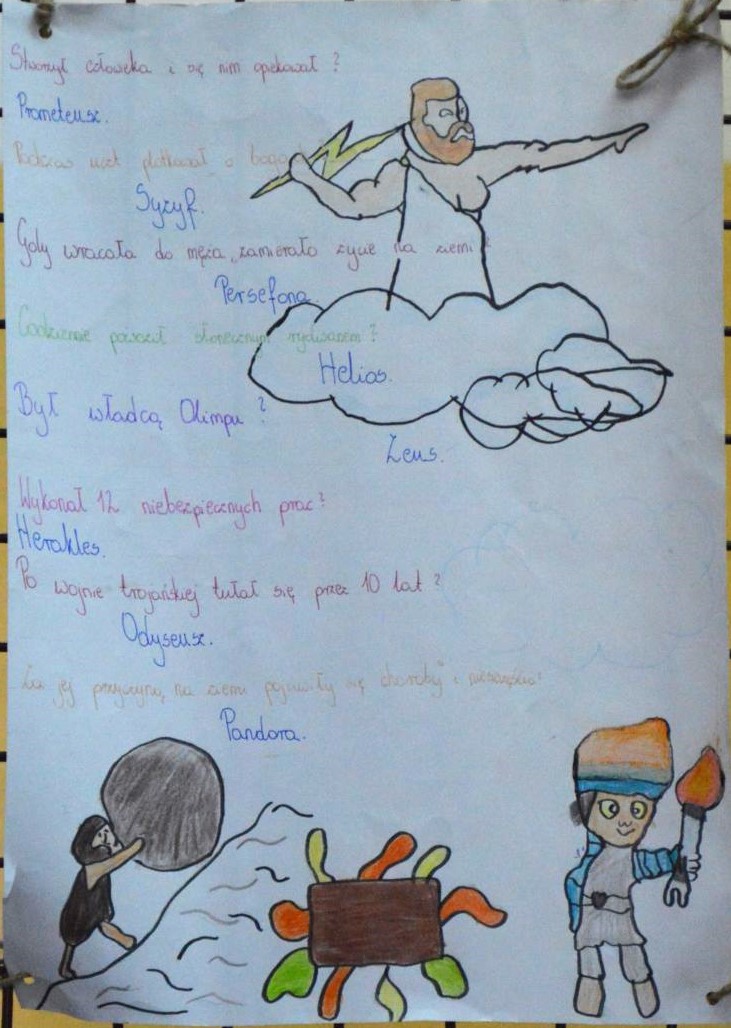 Stworzył człowieka i się nim opiekował?
Prometeusz.
Podczas uczt plotkował o bogach?
Syzyf.
Gdy wracała do męża, zamierało życie na ziemi?
Persefona.
Codziennie powoził słonecznym rydwanem?
Helios.
Był władcą Olimpu?
Zeus.
Wykonał 12 niebezpiecznych prac?
Herakles.
Po wojnie trojańskiej tułał się przez 10 lat?
Odyseusz.
Za jej przyczyną, na ziemi pojawiły się choroby i nieszczęścia?
Pandora.